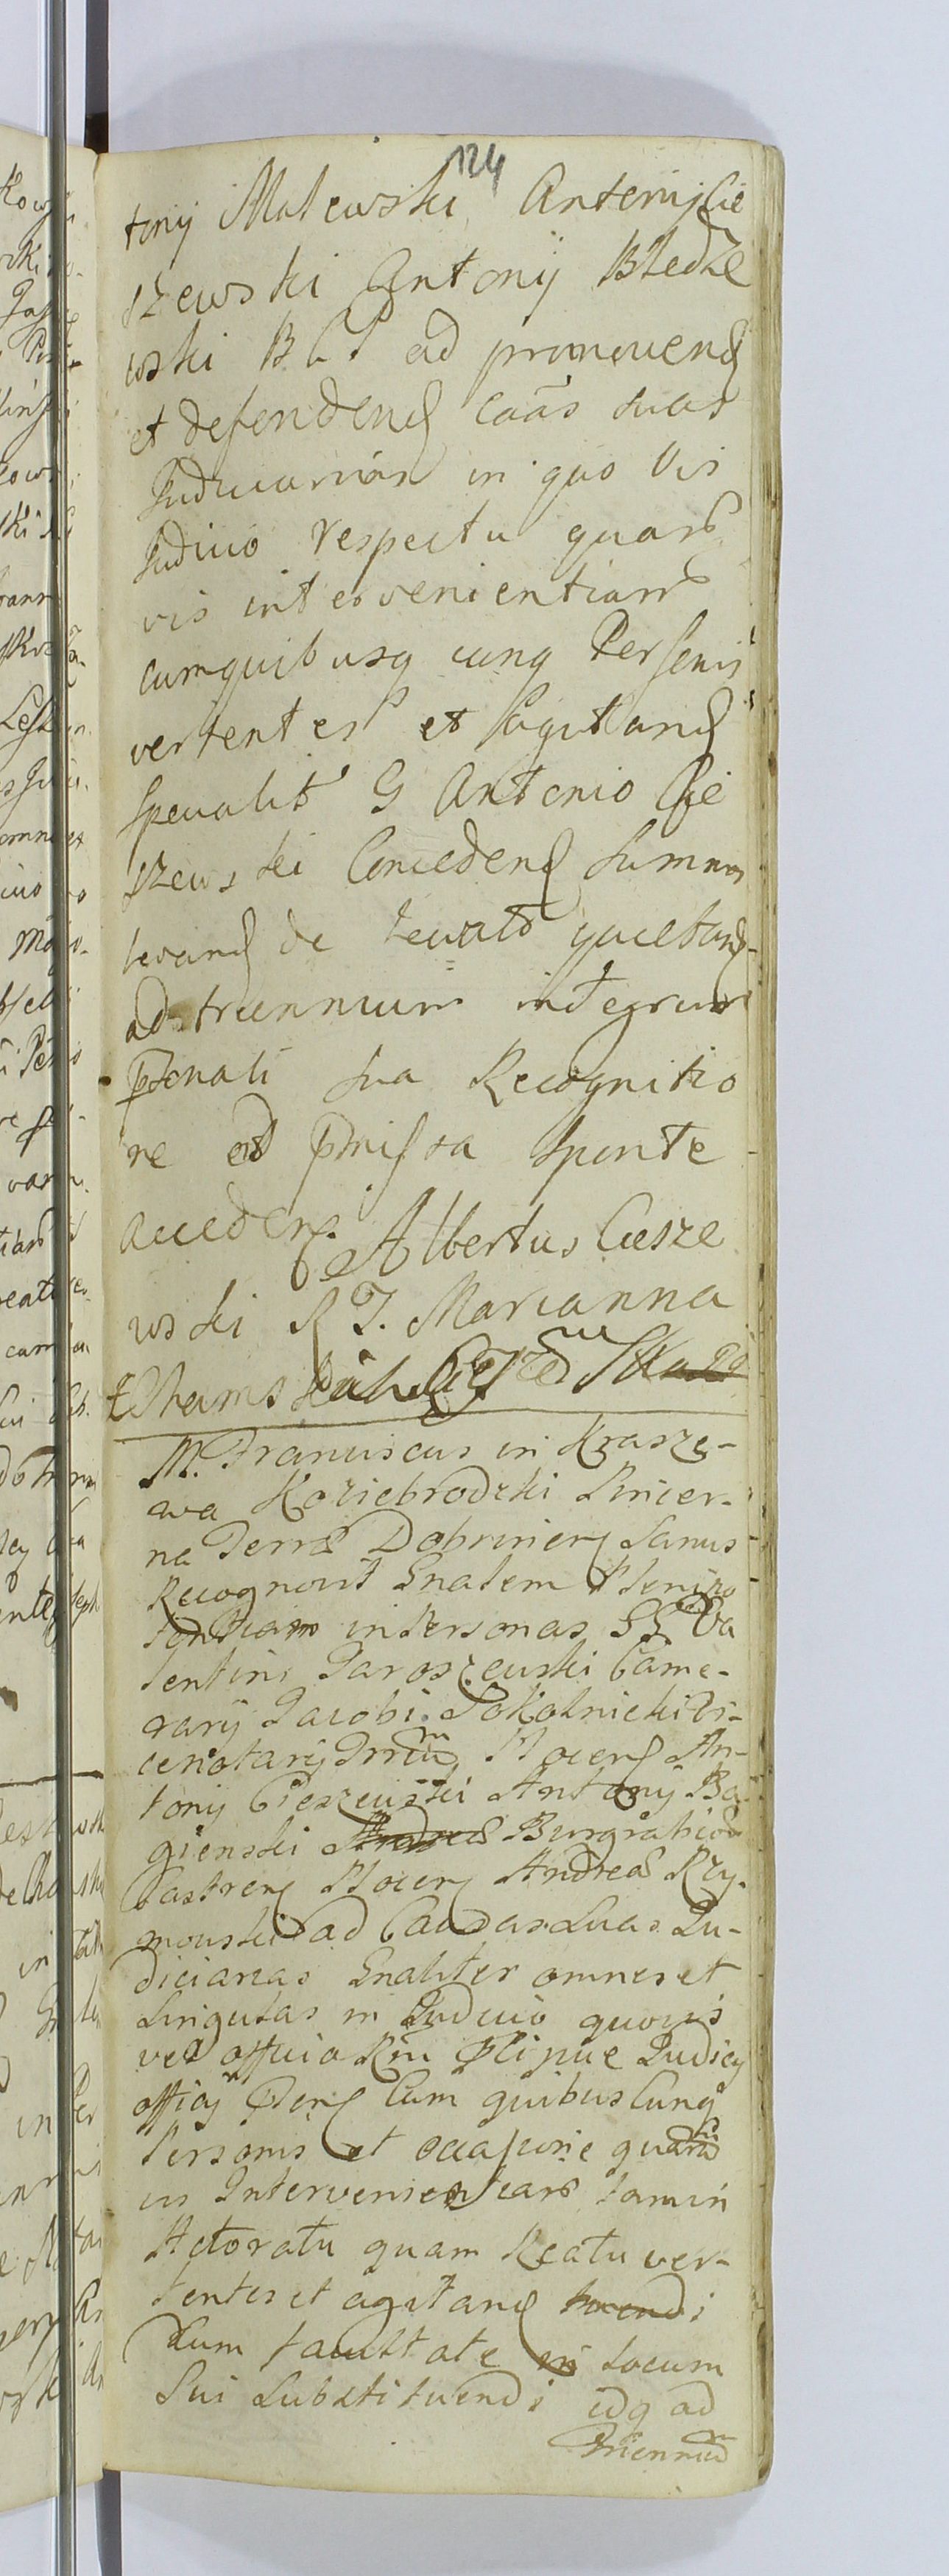 124
tonij Malewski Antonij Cie
szewski Antonij Bledze
wski B G P ad promovend
et defendend Caas suas
Judiciarias in quo vis
Judicio respectu quar
vis intervenientiar
cumquibusq cunq Personis
vertentes et agitand
specialit G Antonio Cie
szewski Concedend summas
levand de levat quietand
ad triennium integrum
psonali sua Recognitio
ne ad pmissa sponte
acceden. Albertus Ciesze
wski R T. Marianna
M. Franciscus in Krasze-
wa Koziebrodzki Pincer-
na Terrae Dobrinen Sanus
Recognovit Gnalem Plenipo
tentiam in Personas GG Va
lentini Jaroszewski Came-
rarij Jacobi Sokolnicki Vi-
cenotarij Trrium Plocen An-
tonij Cieszewski Antonij Ba
gienski Andreae Burgrabior
Castren Plocen Andreae Rzy-
mowski ad Causas Suas Ju-
diciarias Gnaliter omnes et
Singulas in Judicio quovis
vel officio Rni Plique Judicij
officij Cum quibus Cunq
Personis et occasione quar
vis Intervenientiar tam in
Actoratu quam Reatu ver-
tentes et agitand
Cum facultate in locum
Sui Substituendi idq ad
Trienniu